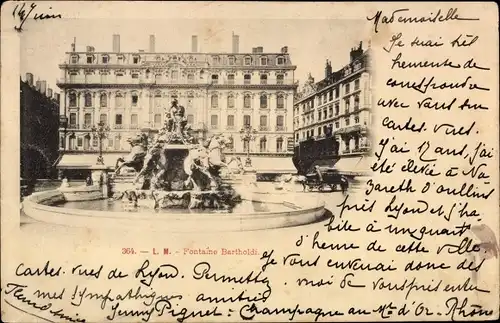 17 juin
Mademoiselle
Je suis très
véhémente de
confondre
avec vous en
cartes-vues.
J'ai 17 ans, j'ai
été élevée à Na
zareth d'Oullins
près Lyon et j'ha
bite à un quart
d'heure de cette ville
Je vous enverrai donc des
cartes-vues de Lyon. Permettez
moi de vous présenter
mes sympathiques amitiés
Jenny Piguet - Champagne au Mt d'Or. Rhône
364. — L. M. - Fontaine Bartholdi.